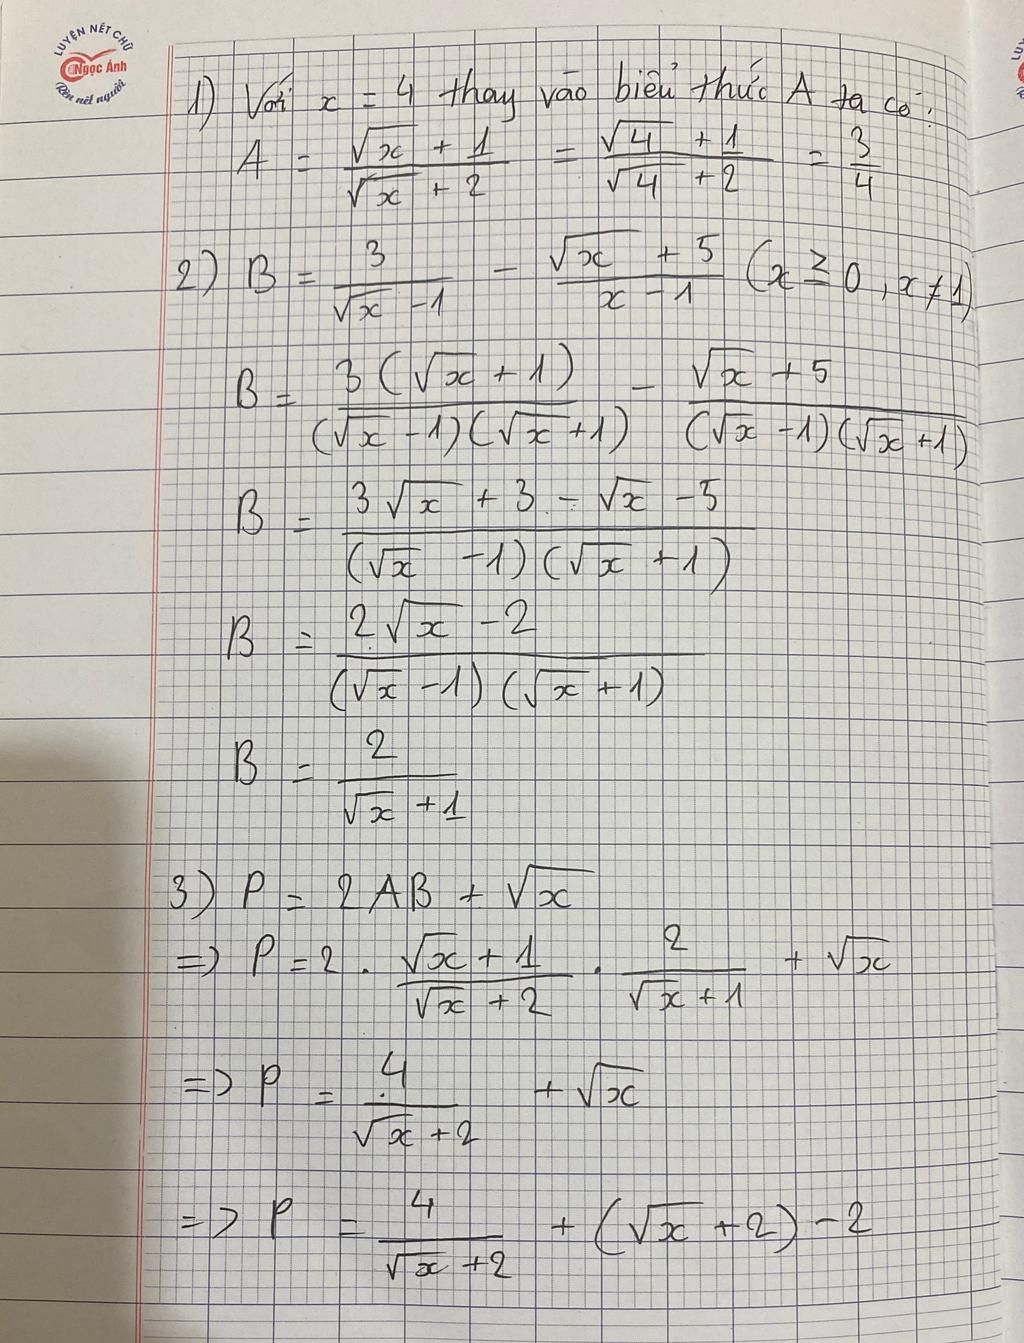 LUYỆN NẾT CHỮ
Ngọc Ánh
Rèn nết người
1) Với x = 4 thay vào biểu thức A ta có:
A = (√x + 1)/(√x + 2) = (√4 + 1)/(√4 + 2) = 3/4
2) B = 3/(√x - 1) - (√x + 5)/(x - 1) (x ≥ 0, x ≠ 1)
B = 3(√x + 1)/((√x - 1)(√x + 1)) - (√x + 5)/((√x - 1)(√x + 1))
B = (3√x + 3 - √x - 5)/((√x - 1)(√x + 1))
B = (2√x - 2)/((√x - 1)(√x + 1))
B = 2/(√x + 1)
3) P = 2AB + √x
=> P = 2 . (√x + 1)/(√x + 2) . 2/(√x + 1) + √x
=> P = 4/(√x + 2) + √x
=> P = 4/(√x + 2) + (√x + 2) - 2